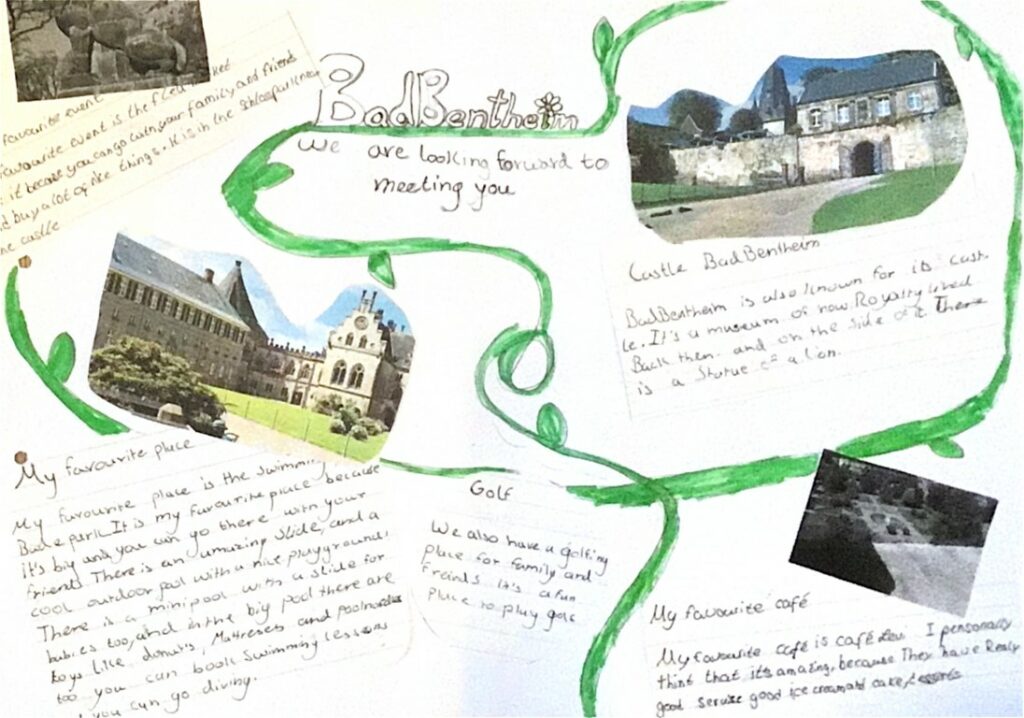 Favourite event
favourite event is the
it because you can go with your family and friends
d buy a lot of nice things. It is in the
ne castle
BadBentheim
We are looking forward to
meeting you
Castle BadBentheim
BadBentheim is also known for its cast-
le. It's a museum of how Royalty lived
Back then. and on the side of it There
is a Statue of a Lion.
My favourite place
My favourite place is the swimming
It is my favourite place because
it's big and you can go there with your
friends. There is an amazing slide, and a
cool outdoor pool with a nice playground.
There is a minipool with a slide for
babies too, and in the big pool there are
toys like donuts, Matreses and poolnoodles
too you can book swimming lessons
you can go diving.
Golf
We also have a golfing
place for family and
Freinds. It's a fun
place to play golf
My favourite café
My favourite café is café I personally
think that it's amazing, because They have Really
good service good ice cream and cake/